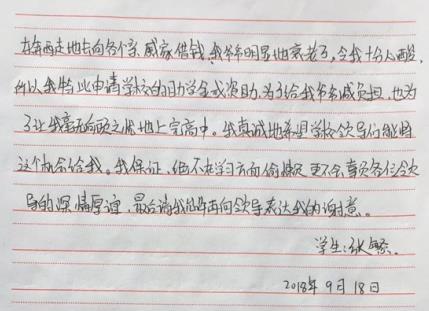 东奔西走地去向各个亲戚家借钱,我爷爷明显地衰老了,令我十分心酸,
所以我特此申请学校的助学金或资助,为了给我爷爷减负担,也为
了让我毫无顾之忧地上完高中。我真诚地希望学校领导们能将
这个机会给我。我保证,绝不在学习方面偷懒 更不会辜负各位领
导的深情厚谊,最后请我 再向领导表达我的谢意。
学生:张
2018年9月18日